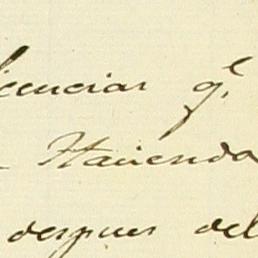 licencias q.e
Hacienda
despues del